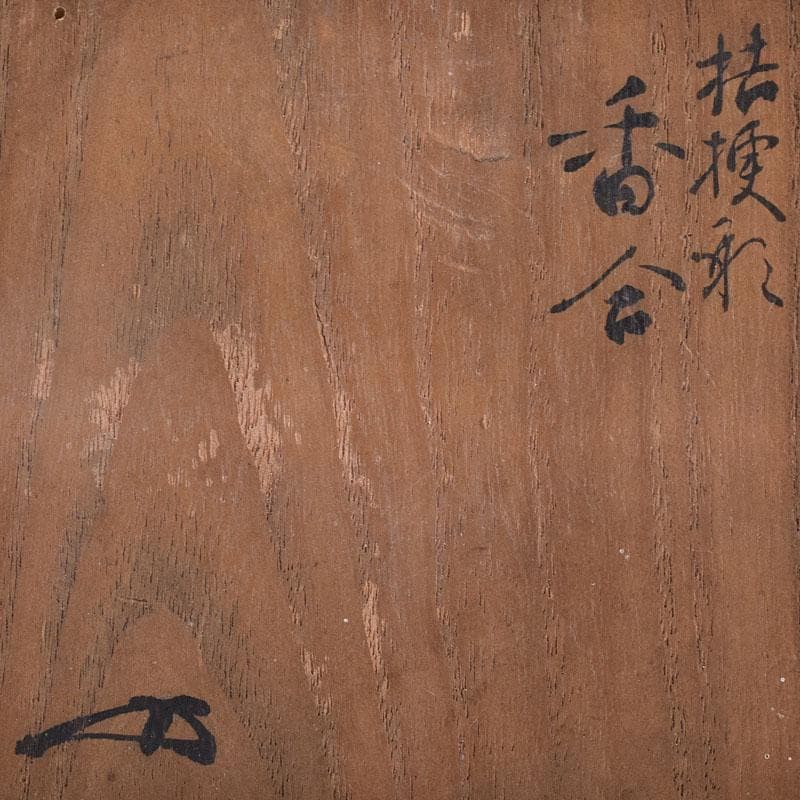 桔梗形
香合